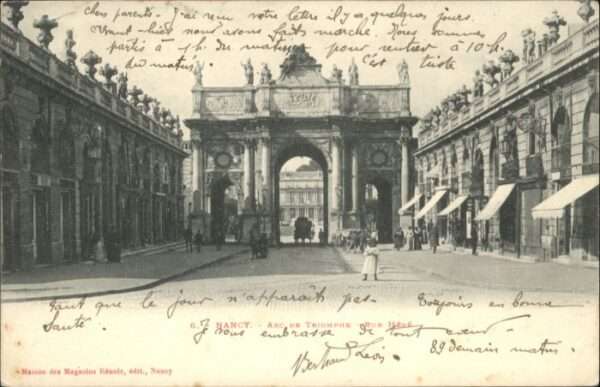 chers parents. J'ai reçu votre lettre il y a quelques jours.
Avant-hier nous avons faits marche. Nous sommes
partis à 1h. du matin pour rentrer à 10 h.
du matin. C'est triste
tant que le jour n'apparaît pas. Toujours en bonne
santé.
6. NANCY. - ARC DE TRIOMPHE - RUE HÉRÉ
Je vous embrasse de tout cœur
Bertrand Léon
89 demain matin.
Maison des Magasins Réunis, édit., Nancy